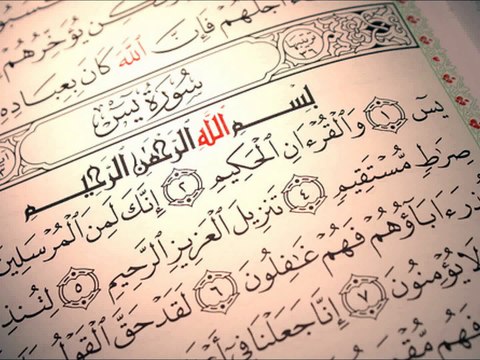 يُؤَخِّرُهُمْ
أَجَلُهُمْ فَإِنَّ ٱللَّهَ كَانَ بِعِبَادِهِ
سُورَةُ يسٓ
بِسْمِ ٱللَّهِ ٱلرَّحْمَٰنِ ٱلرَّحِيمِ
يسٓ ١ وَٱلْقُرْءَانِ ٱلْحَكِيمِ ٢ إِنَّكَ لَمِنَ ٱلْمُرْسَلِينَ
صِرَٰطٍ مُّسْتَقِيمٍ ٤ تَنزِيلَ ٱلْعَزِيزِ ٱلرَّحِيمِ ٥ لِتُنذِ
ُنذِرَ ءَابَآؤُهُمْ فَهُمْ غَٰفِلُونَ ٦ لَقَدْ حَقَّ ٱلْقَوْلُ
لَا يُؤْمِنُونَ ٧ إِنَّا جَعَلْنَا فِىٓ أَ
فَهُم مُّقْ